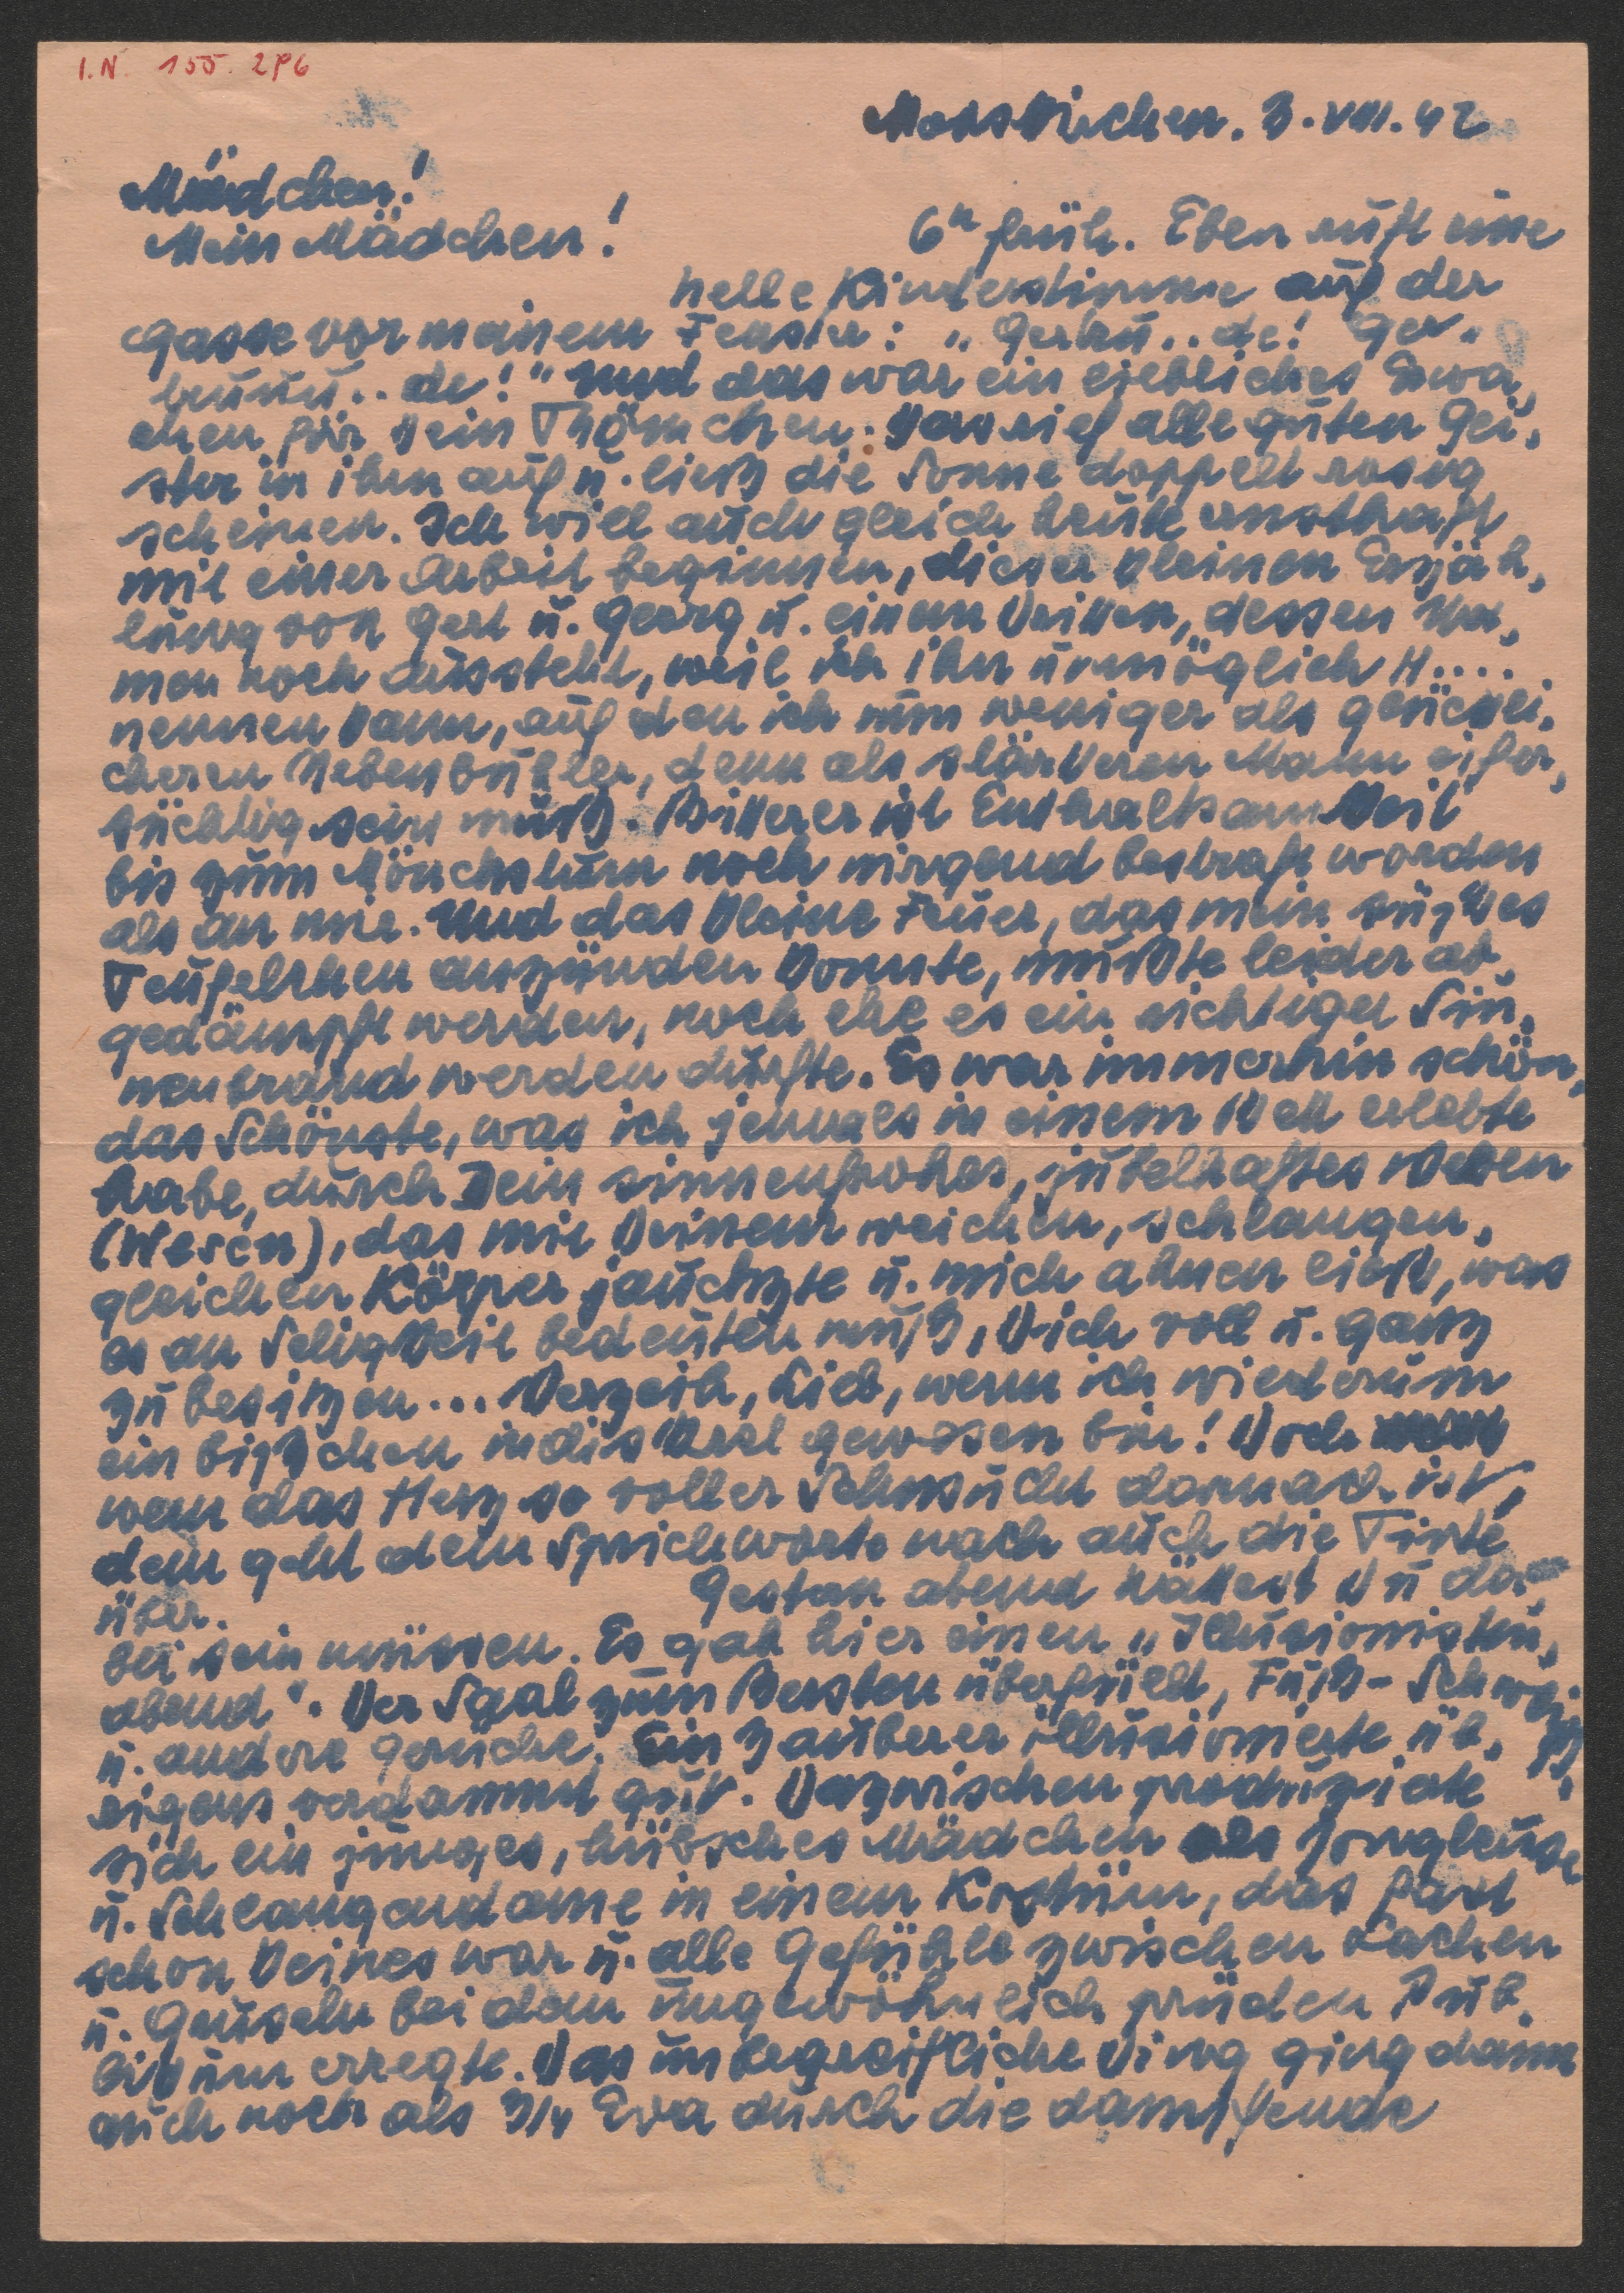 I.N. 155.296
Mooskirchen. 3.VIII.42
Mädchen!
Mein Mädchen!
6h früh. Eben ruft eine
helle Kinderstimme auf der
Gasse vor meinem Fenster: „Gertru..de! Ger-
truuu..de!" Und das war ein liebliches Erwa-
chen für Dein Thömchen. Das rief alle guten Gei-
ster in ihm auf u. ließ die Sonne doppelt rosig
scheinen. Ich will auch gleich heute ernsthaft
mit einer Arbeit beginnen, dieser kleinen Erzäh-
lung von Gert u. Georg u. einem Dritten, dessen Na-
men noch aussteht, weil ich ihn unmöglich H....
nennen kann, auf den ich nun weniger als glückli-
cheren Nebenbuhler, denn als stärkeren Mann eifer-
süchtig sein muß. Bitterer ist Enthaltsamkeit
bis zum Mönchstum noch nirgend bestraft worden
als an mir. Und das kleine Feuer, das mein süßes
Teufelchen anzünden konnte, mußte leider ab-
gedämpft werden, noch ehe es ein richtiger Sin-
nenbrand werden durfte. Es war immerhin schön,
das Schönste, was ich jemals in einem Bett erlebte
habe, durch Dein sinnenfrohes, jubelhaftes Weben
(Wesen), das mit Deinem weichen, schlangen-
gleichen Körper jauchzte u. mich ahnen ließ, was
es an Seligkeit bedeuten muß, Dich voll u. ganz
zu besitzen... Verzeih, Lieb, wenn ich wiederum
ein bißchen indiskret gewesen bin! Doch
wem das Herz so voller Sehnsucht darnach ist,
dem geht dem Sprichworte nach auch die Tinte
über.
Gestern abend hättest Du da-
bei sein müssen. Es gab hier einen „Illusionisten-
abend". Der Saal zum Bersten überfüllt, Fuß- Schweiß-
u. andere Gerüche. Ein Zauberer illusionierte üb-
rigens verdammt gut. Dazwischen produzierte
sich ein junges, hübsches Mädchen als Jongleuse
u. Schlangendame in einem Kostüm, das fast
schon keines war u. alle Gefühle zwischen Lachen
u. Gruseln bei dem ungewöhnlich prüden Pub-
likum erregte. Das unbegreifliche Ding ging dann
auch noch als 3/4 Eva durch die dampfende